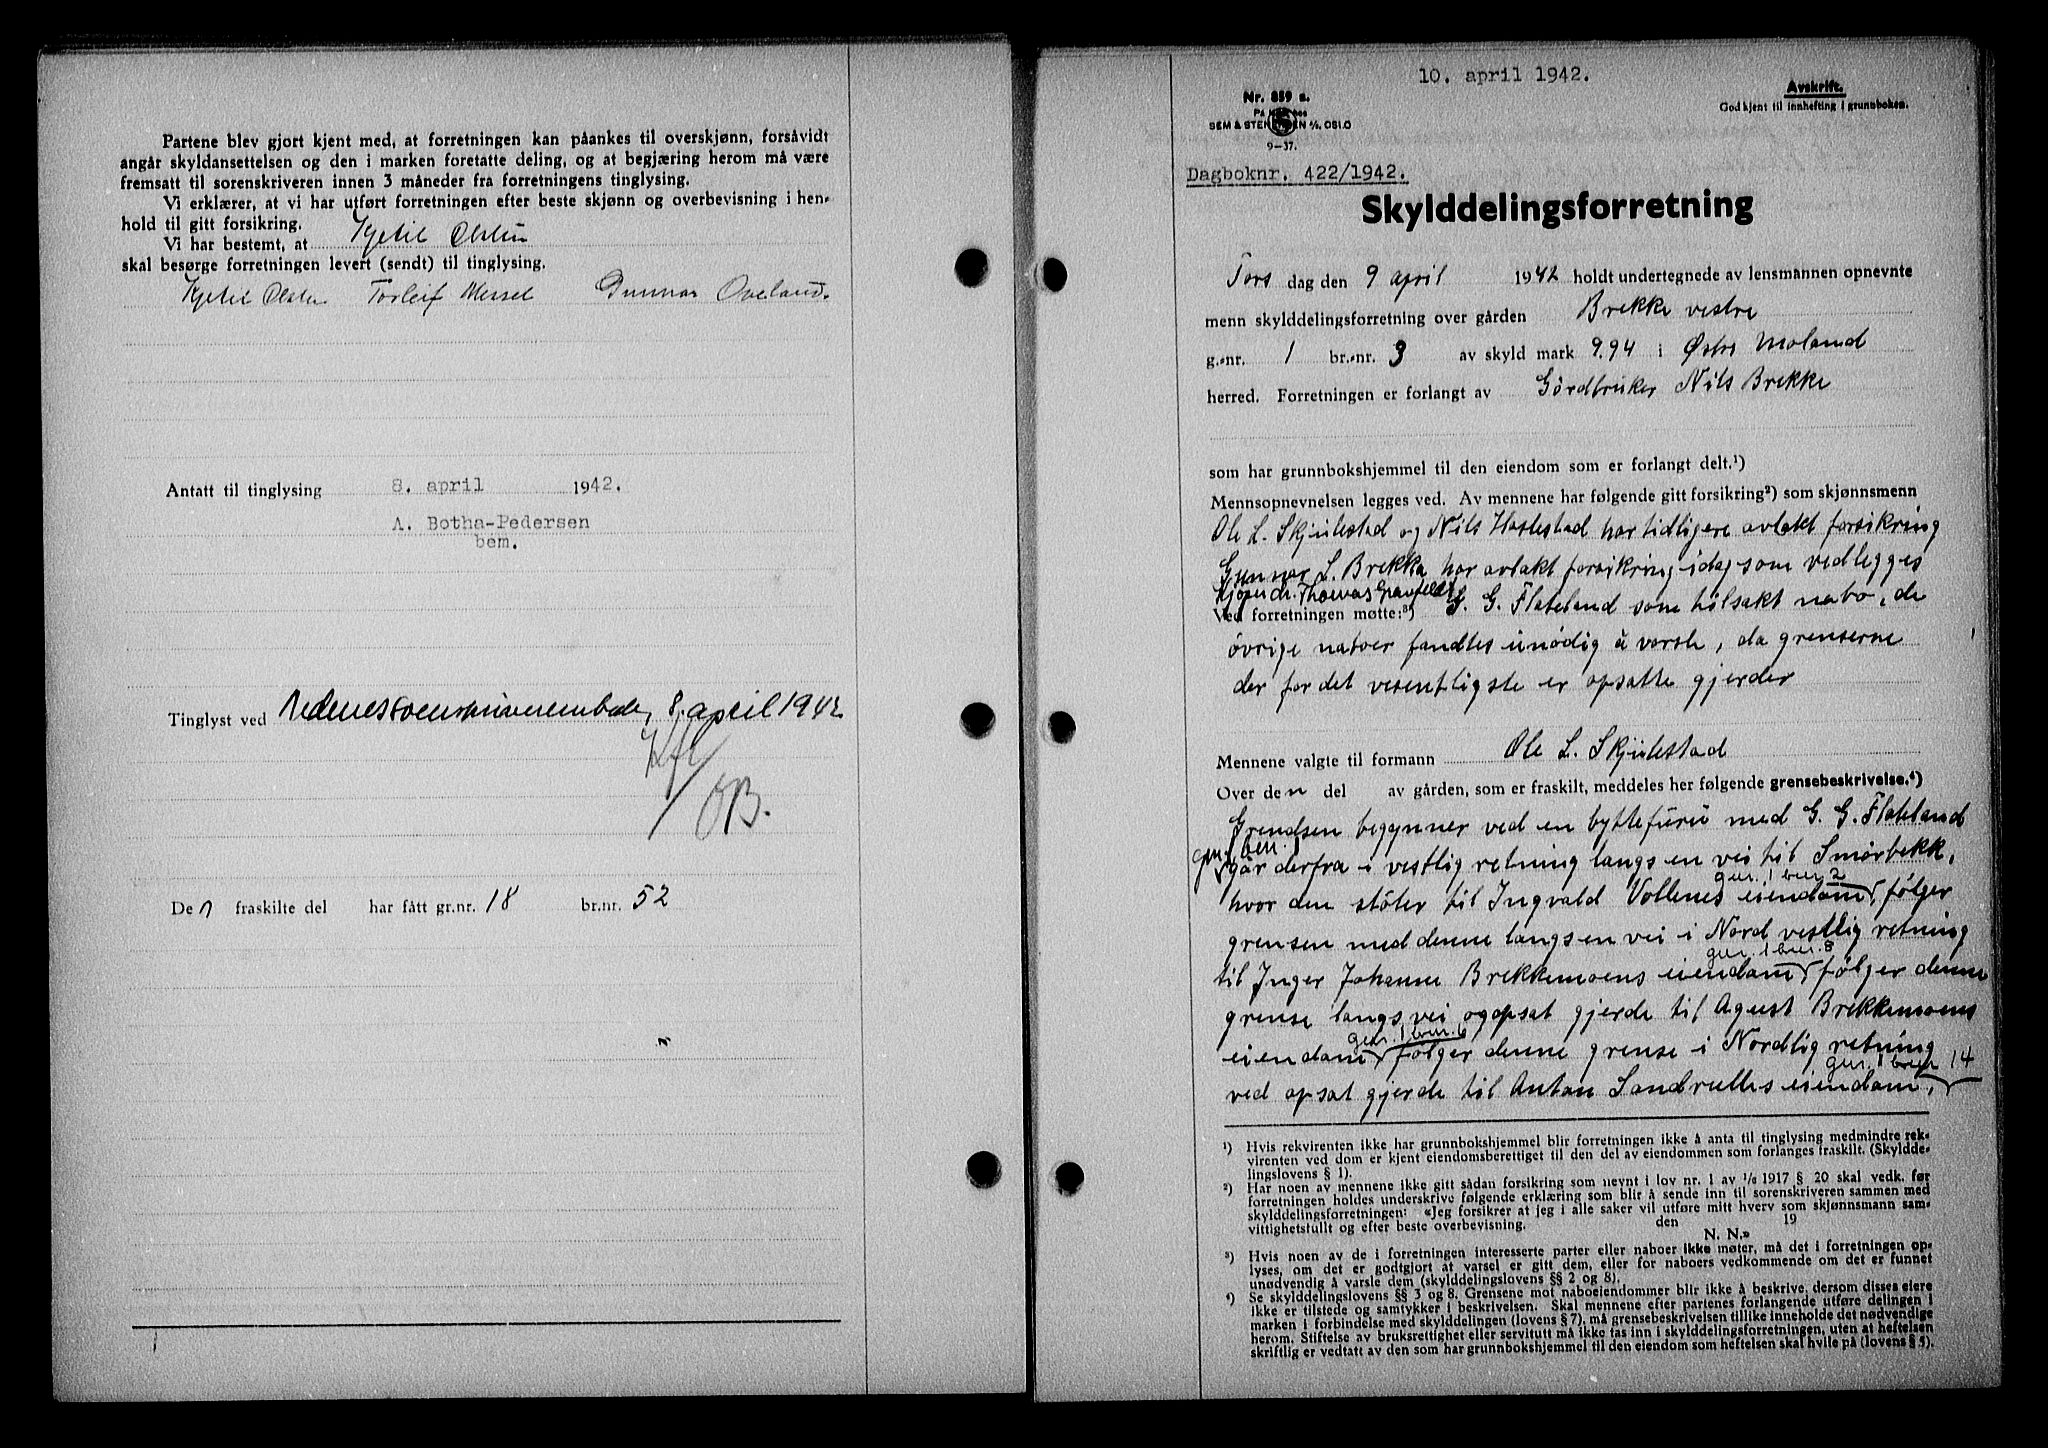 Partene blev gjort kjent med, at forretningen kan påankes til overskjønn, forsåvidt
angår skyldansettelsen og den i marken foretatte deling, og at begjæring herom må være
fremsatt til sorenskriveren innen 3 måneder fra forretningens tinglysing.
Vi erklærer, at vi har utført forretningen efter beste skjønn og overbevisning i hen-
hold til gitt forsikring.
Vi har bestemt, at Kjetil Olsten
skal besørge forretningen levert (sendt) til tinglysing.
Kjetil Olsten Torleif Messel Gunnar Oveland.
Antatt til tinglysing 8. april 1942.
A. Botha-Pedersen
bem.
Tinglyst ved Nedenes sorenskriverembede, 8. april 1942
OB.
Den fraskilte del har fått gr.nr. 18 br.nr. 52
10. april 1942.
Avskrift.
Godkjent til innhefting i grunnboken.
Nr. 859 a.
SEM & STENERSEN A/S, OSLO
9-37.
Dagboknr. 422/1942.
Skylddelingsforretning
Torsdag den 9 april 1942 holdt undertegnede av lensmannen opnevnte
menn skylddelingsforretning over gården Brekke vestre
g.-nr. 1 br.-nr. 3 av skyld mark 9.94 i Østre Moland
herred. Forretningen er forlangt av Gårdbruker Nils Brekke
som har grunnbokshjemmel til den eiendom som er forlangt delt.¹)
Mennsopnevnelsen legges ved. Av mennene har følgende gitt forsikring²) som skjønnsmenn
Ole L. Skjulestad og Nils Haslestad har tidligere avlakt forsikring
Gunnar L. Brekka har avlakt forsikring idag som vedlegges
Thomas
Ved forretningen møtte:³) G. G. Flateland som tilsakt nabo, de
øvrige naboer fandtes unødig å varsle, da grenserne
der for det vesentligste er opsatte gjerder
Mennene valgte til formann Ole L. Skjulestad
Over den del av gården, som er fraskilt, meddeles her følgende grensebeskrivelse.⁴)
Grendsen begynner ved en byttefuru med G. G. Flateland
gnr. 1 bnr. 1
går derfra i vestlig retning langs en vei til Smørbekk,
gnr. 1 bnr 2
hvor den støter til Ingvald Vollenes eiendom, følger
grensen med denne langs en vei i Nord vestlig retning
gnr. 1 bnr. 8
til Inger Johanne Brekkemoens eiendom, følger denne
grense langs vei og opsat gjerde til Agust Brekkemoens
gnr. 1 bnr. 6
eiendom, følger denne grense i Nordlig retning
gnr. 1 bnr 14
ved opsat gjerde til Anton Sandvelles eiendom,
¹) Hvis rekvirenten ikke har grunnbokshjemmel blir forretningen ikke å anta til tinglysing medmindre rek-
virenten ved dom er kjent eiendomsberettiget til den del av eiendommen som forlanges fraskilt. (Skyldde-
lingslovens § 1).
²) Har noen av mennene ikke gitt sådan forsikring som nevnt i lov nr. 1 av 1/6 1917 § 20 skal vedk. før
forretningen holdes underskrive følgende erklæring som blir å sende inn til sorenskriveren sammen med
skylddelingsforretningen: «Jeg forsikrer at jeg i alle saker vil utføre mitt hverv som skjønnsmann sam-
vittighetsfullt og efter beste overbevisning. den 19
N. N.»
³) Hvis noen av de i forretningen interesserte parter eller naboer ikke møter, må det i forretningen op-
lyses, om det er godtgjort at varsel er gitt dem, eller for naboers vedkommende om det er funnet
unødvendig å varsle dem (skylddelingslovens §§ 2 og 8).
⁴) Se skylddelingslovens §§ 3 og 8. Grensene mot naboeiendommer blir ikke å beskrive, dersom disses eiere
ikke er tilstede og samtykker i beskrivelsen. Skal mennene efter partenes forlangende utføre delingen i
marken i forbindelse med skylddelingen (lovens § 7), må grensebeskrivelsen tillike inneholde det nødvendige
herom. Stiftelse av bruksrettighet eller servitutt må ikke tas inn i skylddelingsforretningen, uten at heftelsen
skriftlig er vedtatt av den som har grunnbokshjemmel til den eiendom som heftelsen skal hvile på (lovens § 5).